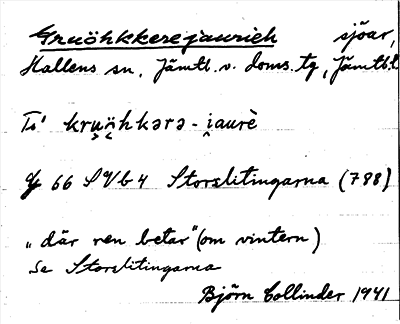 Gruöhkkerejaurieh sjöar,
Hallens sn, Jämtl. v. doms. tg, Jämtl. l.
Ti' kru̯ö̯hkərə-i̯aurè
66 SVb4 Storslitingarna (788)
"där ren betar" (om vintern)
Se Storslitingarna
Björn Collinder 1941